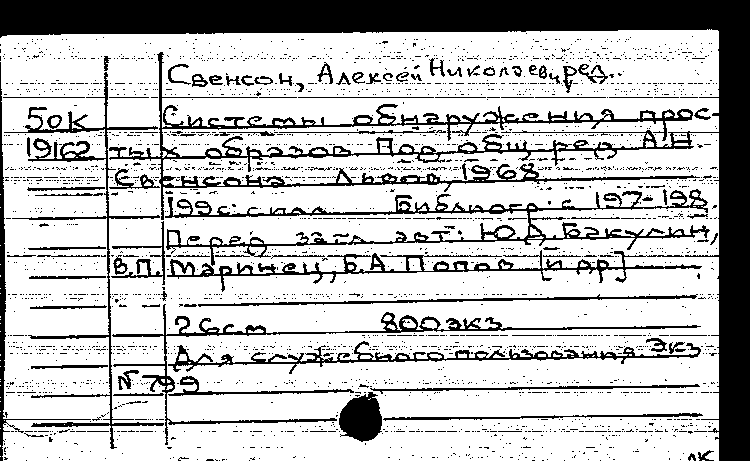 Свенсон, Алексей Николаевич ред.
50к Системы обнаружения прос-
19162 тых образов. Под общ. ред. А.Н.
Свенсона. Львов, 1968
199с. с илл. Библиогр: с 197-198.
Перед загл. авт: Ю.Д. Бакулин,
В.П. Маринец, Б.А. Попов [и др]
26 см 800 экз
Для служебного пользования. Экз
№ 799